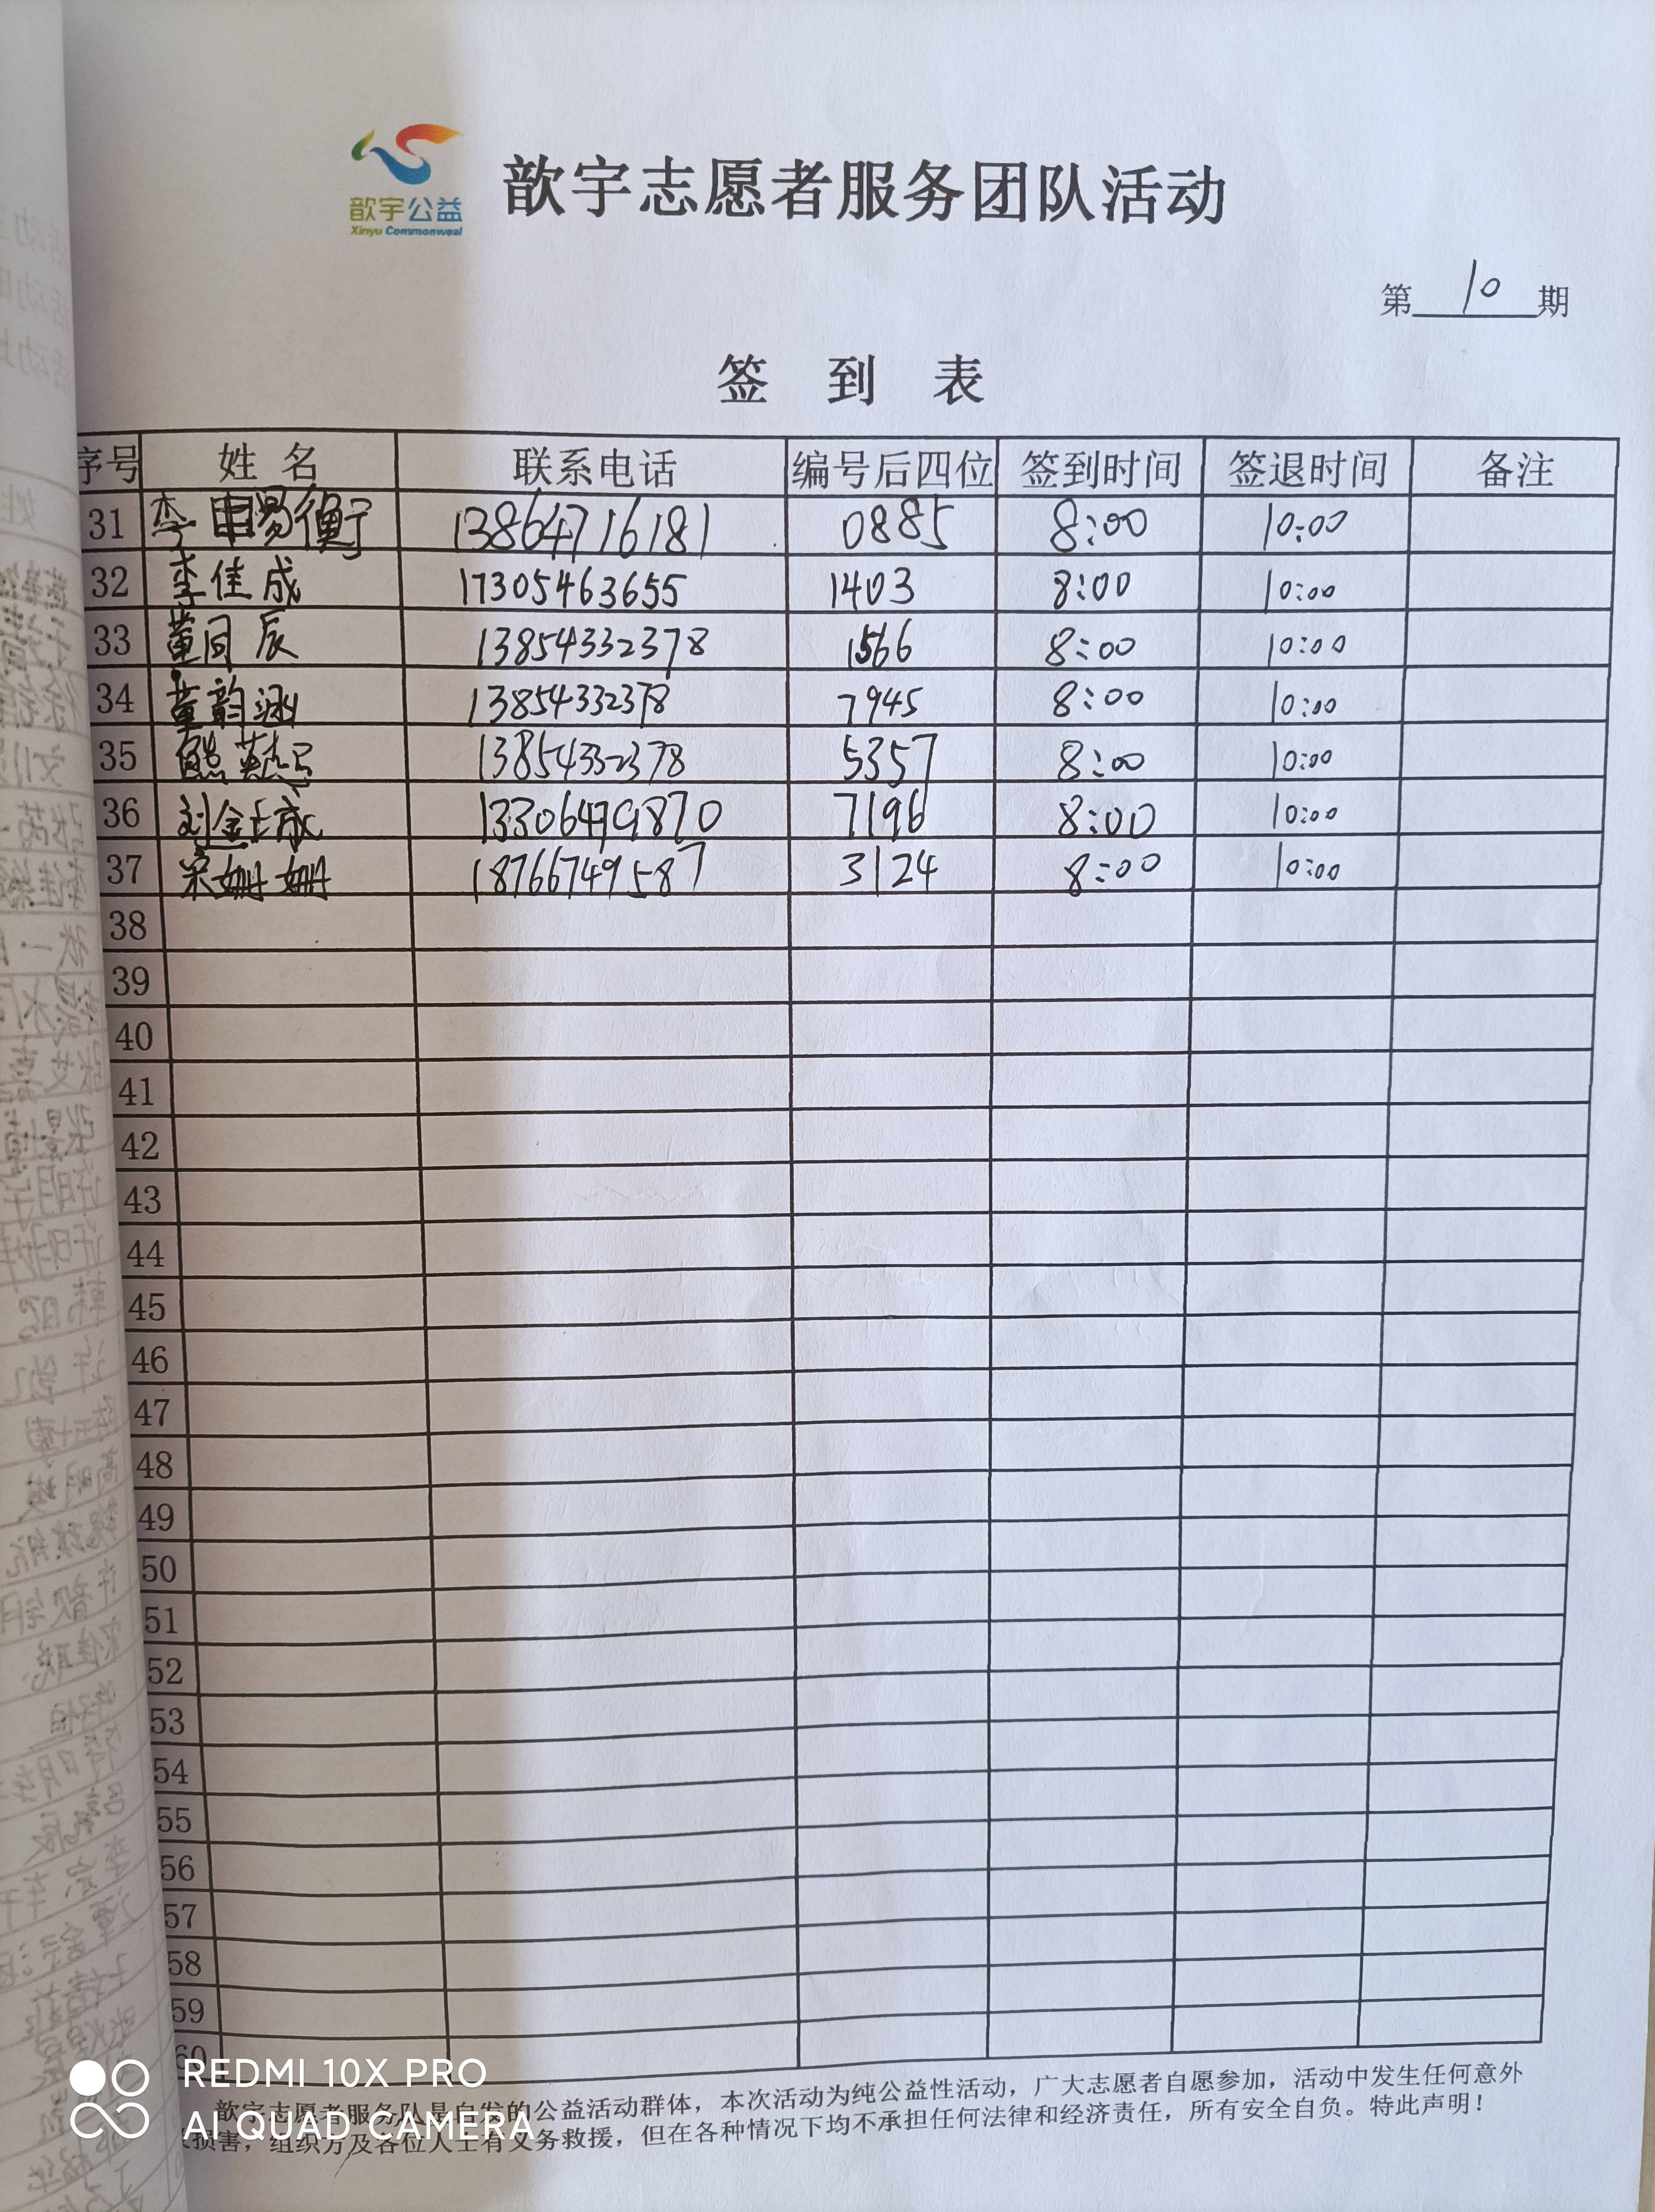 歆宇公益
Xinyu Commonweal
歆宇志愿者服务团队活动
第 10 期
签 到 表
序号 姓 名 联系电话 编号后四位 签到时间 签退时间 备注
31 李 易衡 13864716181 0885 8:00 10:00
32 李佳成 17305463655 1403 8:00 10:00
33 董同辰 13854332378 1566 8:00 10:00
34 董韵涵 13854332378 7945 8:00 10:00
35 熊 13854332378 5357 8:00 10:00
36 刘金 成 13306479870 7196 8:00 10:00
37 宋姗姗 18766749587 3124 8:00 10:00
38
39
40
41
42
43
44
45
46
47
48
49
50
51
52
53
54
55
56
57
58
59
60
REDMI 10X PRO
AI QUAD CAMERA
歆宇志愿者服务队是自发的公益活动群体，本次活动为纯公益性活动，广大志愿者自愿参加，活动中发生任何意外
损害，组织方及各位人士有义务救援，但在各种情况下均不承担任何法律和经济责任，所有安全自负。特此声明！